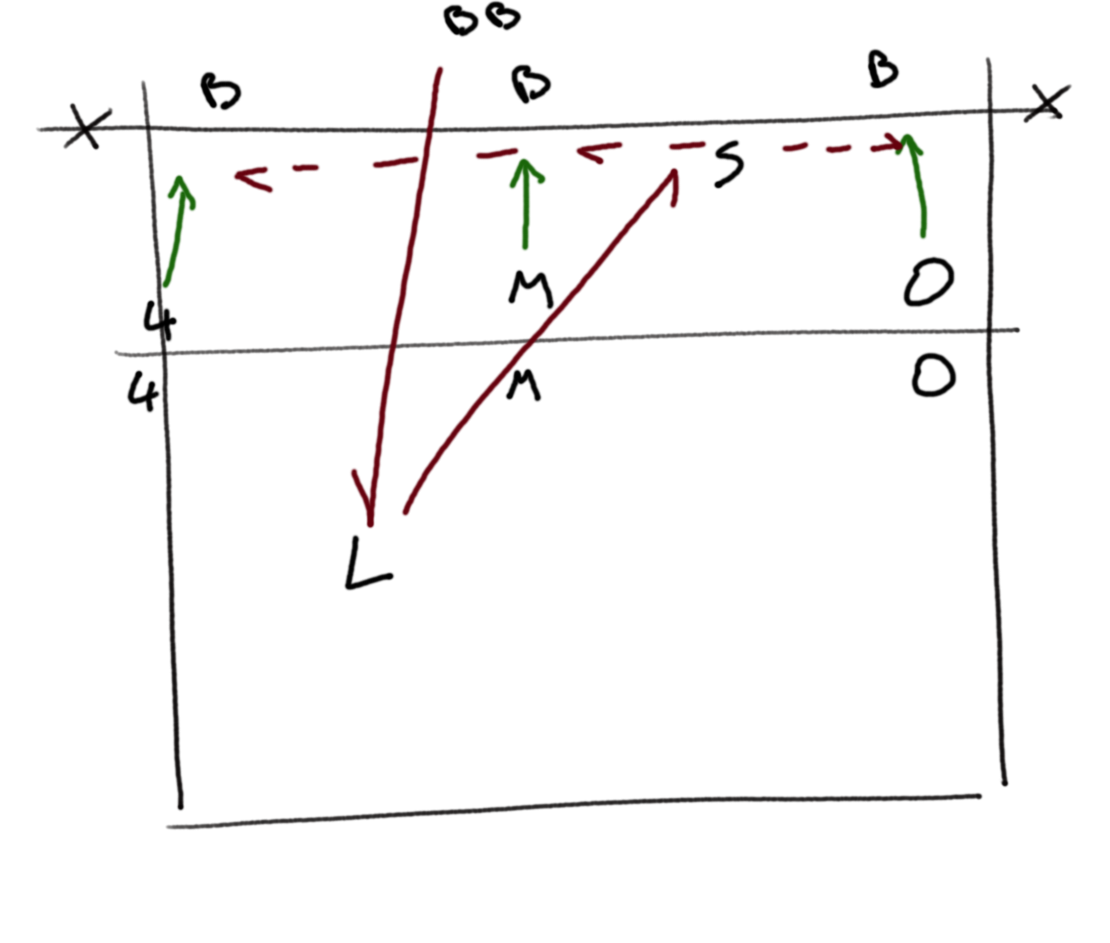 BB
B B B
X X
S
4 M O
4 M O
L